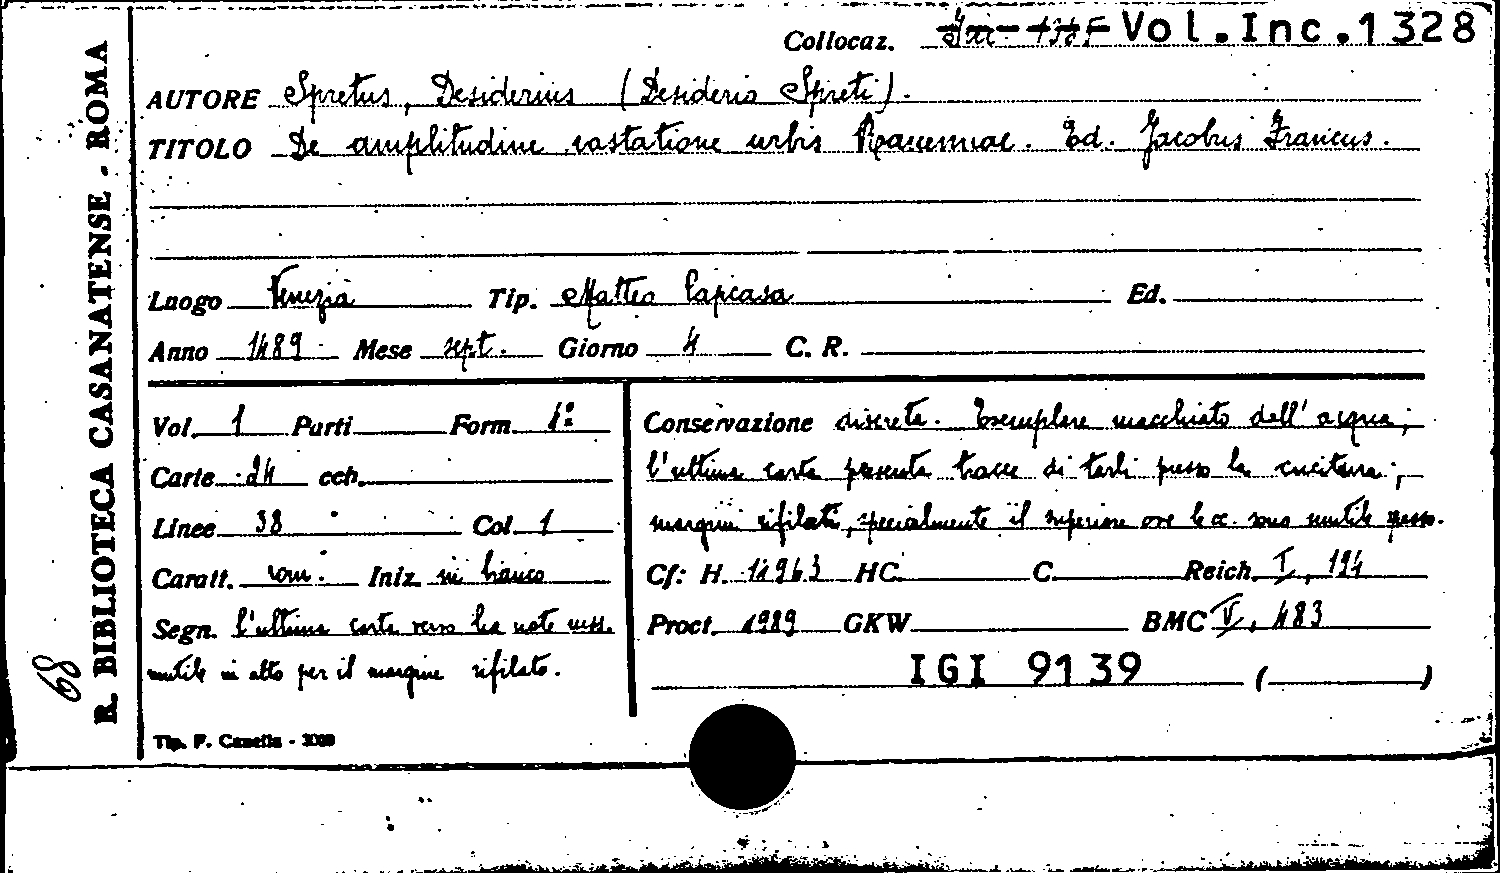 R. BIBLIOTECA CASANATENSE - ROMA
68
Collocaz. Vol.Inc.1328
AUTORE Spretus, Desiderius (Desiderio Spreti).
TITOLO De amplitudine vastatione urbis Ravennae. Ed. Jacobus Francus.
Luogo Venezia Tip. Matteo Capcasa Ed.
Anno 1489 Mese sept. Giorno 4 C. R.
Vol. 1 Parti Form. 4º
Carte 24 cch.
Linee 38 Col. 1
Caratt. rom. Iniz. in bianco
Segn. l'ultima carta verso ha note mss.
mutile in alto per il margine rifilato.
Conservazione discreta. Esemplare macchiato dall'acqua;
l'ultima carta presenta tracce di tarli presso la cucitura;
margini rifilati, specialmente il superiore ove le cc. sono mutile spesso.
Cf: H. 14963 HC. C. Reich. I, 194
Proct. 4989 GKW BMC V, 483
IGI 9139 ( )
Tip. F. Canella - 3000